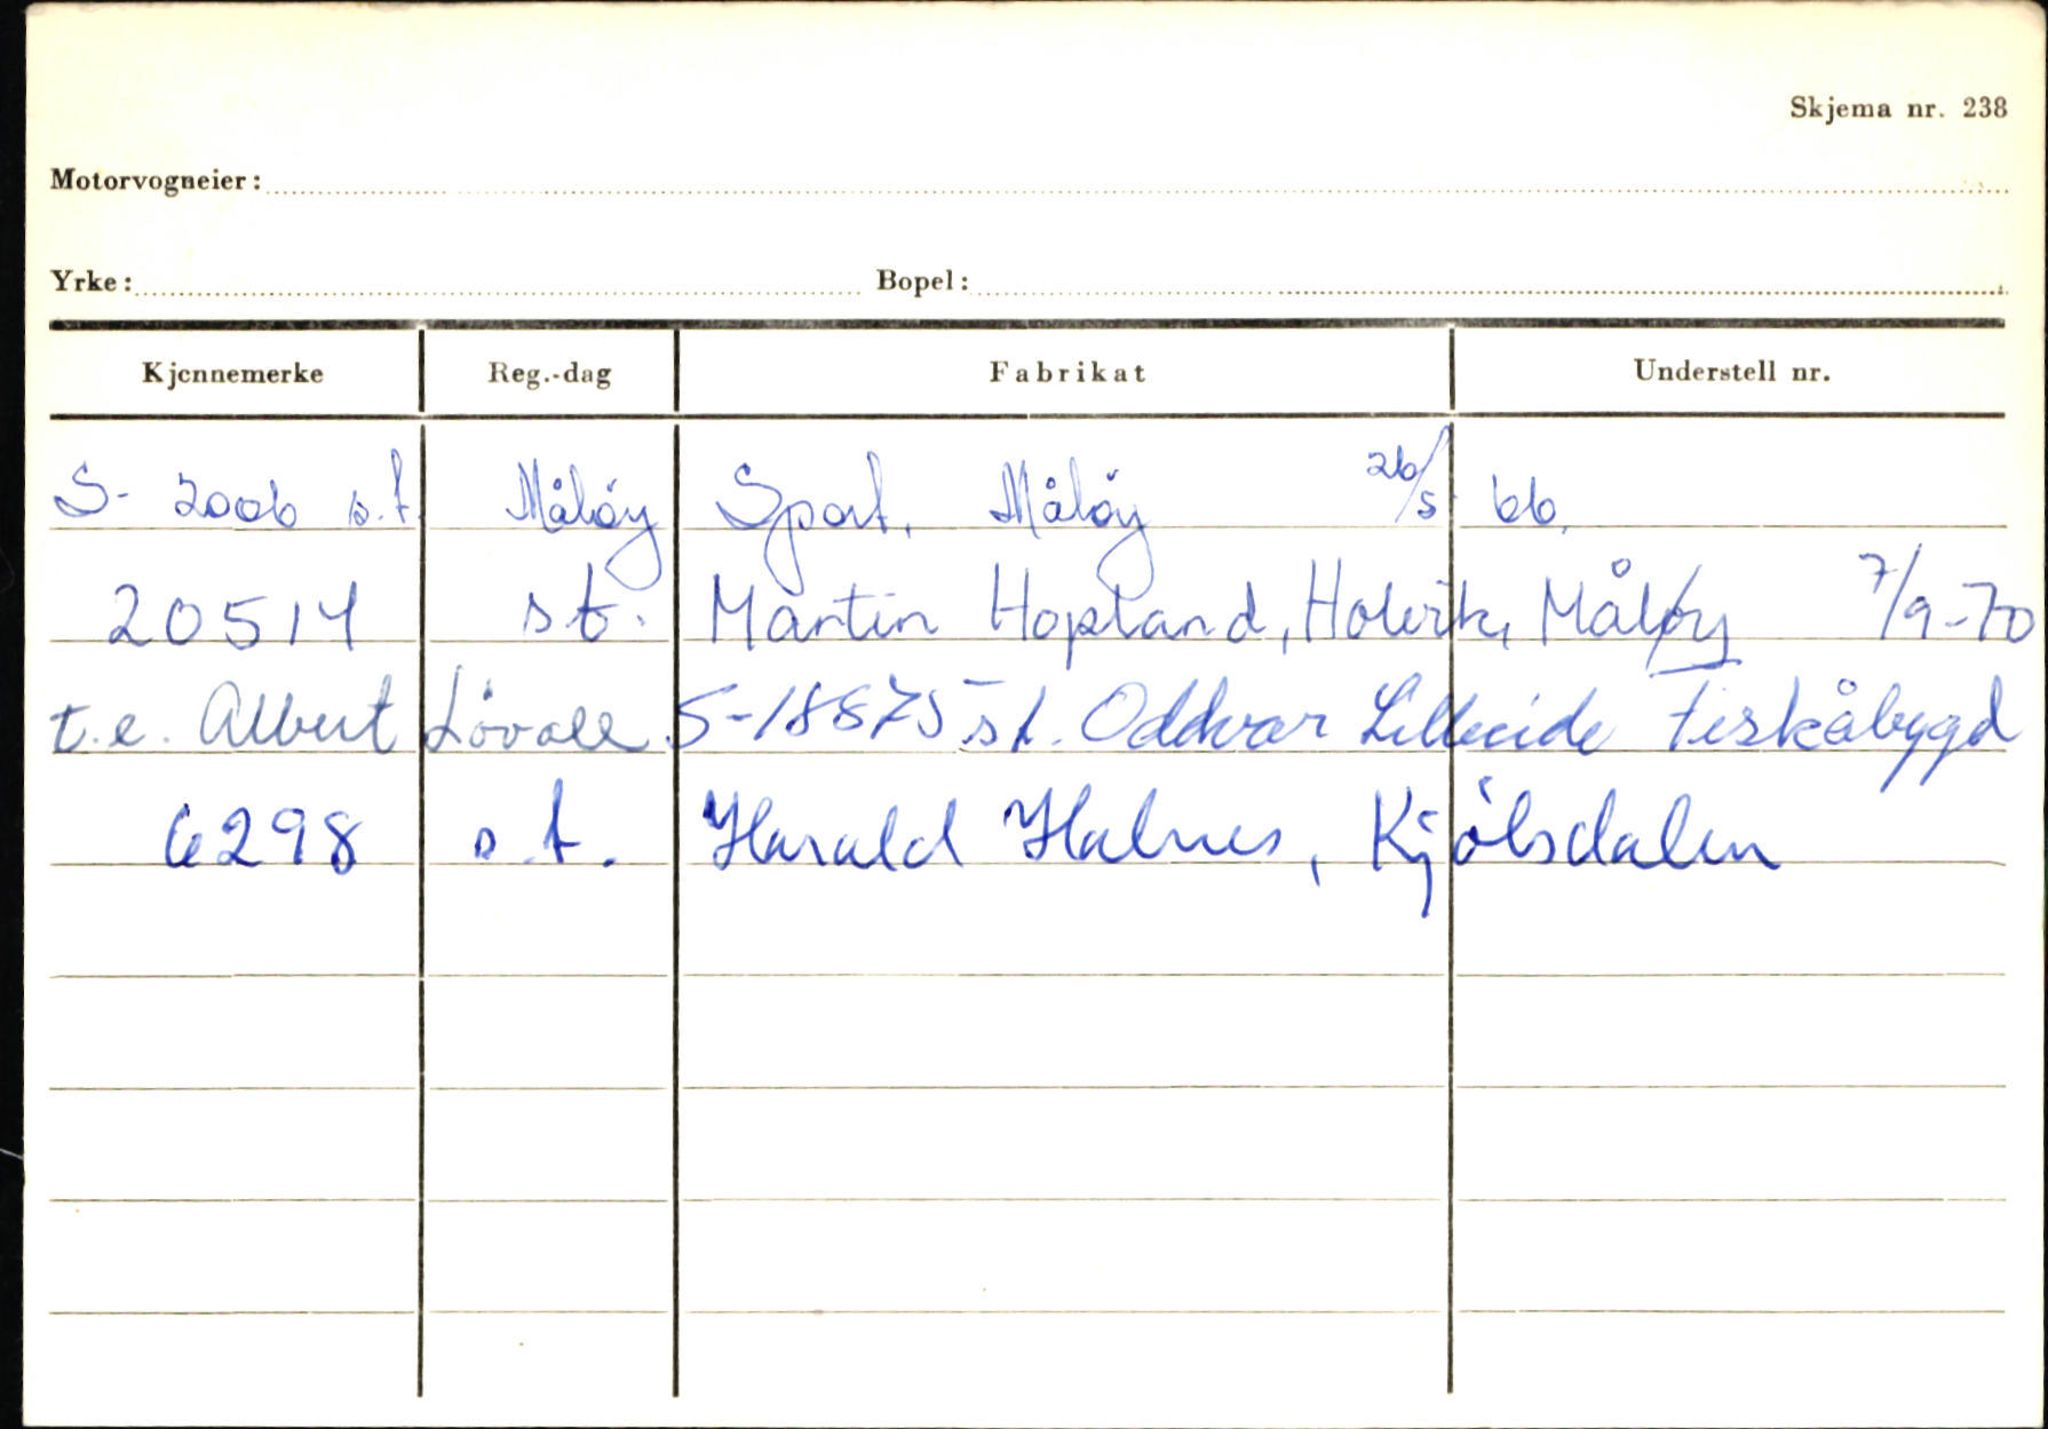 Skjema nr. 238
Motorvogneier:
Yrke: Bopel:
Kjennemerke Reg.-dag Fabrikat Understell nr.
S- 2006 s.t. Måløy Sport, Måløy 26/5 66.
20514 st. Martin Hopland, Holvik, Måløy 7/9-70
t.e. Albert S-18875 st. Oddvar Lilleeide
6298 s.t. Harald Halnes, Kjölsdalen